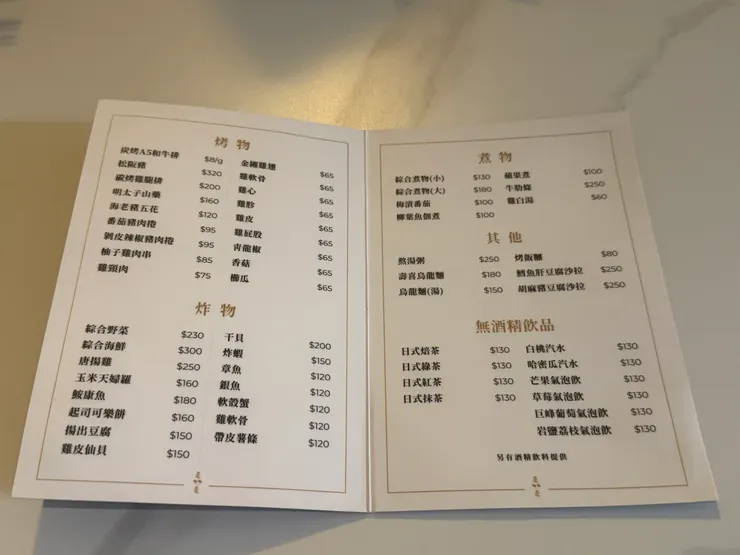 烤物
炭烤A5和牛排 $8/g
松阪豬 $320
碳烤雞腿排 $200
明太子山藥 $160
海老豬五花 $120
番茄豬肉捲 $95
剝皮辣椒豬肉捲 $95
柚子雞肉串 $85
雞頸肉 $75
金鑽雞翅 $65
雞軟骨 $65
雞心 $65
雞胗 $65
雞皮 $65
雞屁股 $65
青龍椒 $65
香菇 $65
櫛瓜 $65
炸物
綜合野菜 $230
綜合海鮮 $300
唐揚雞 $250
玉米天婦羅 $160
鮟康魚 $180
起司可樂餅 $160
揚出豆腐 $150
雞皮仙貝 $150
干貝 $200
炸蝦 $150
章魚 $120
銀魚 $120
軟殼蟹 $120
雞軟骨 $120
帶皮薯條 $120
煮物
綜合煮物(小) $130
綜合煮物(大) $180
梅漬番茄 $100
柳葉魚佃煮 $100
蘋果煮 $100
牛肋條 $250
雞白湯 $60
其他
熬湯粥 $250
壽喜烏龍麵 $180
烏龍麵(湯) $150
烤飯糰 $80
鱈魚肝豆腐沙拉 $250
胡麻豬豆腐沙拉 $250
無酒精飲品
日式焙茶 $130
日式綠茶 $130
日式紅茶 $130
日式抹茶 $130
白桃汽水 $130
哈密瓜汽水 $130
芒果氣泡飲 $130
草莓氣泡飲 $130
巨峰葡萄氣泡飲 $130
岩鹽荔枝氣泡飲 $130
另有酒精飲料提供